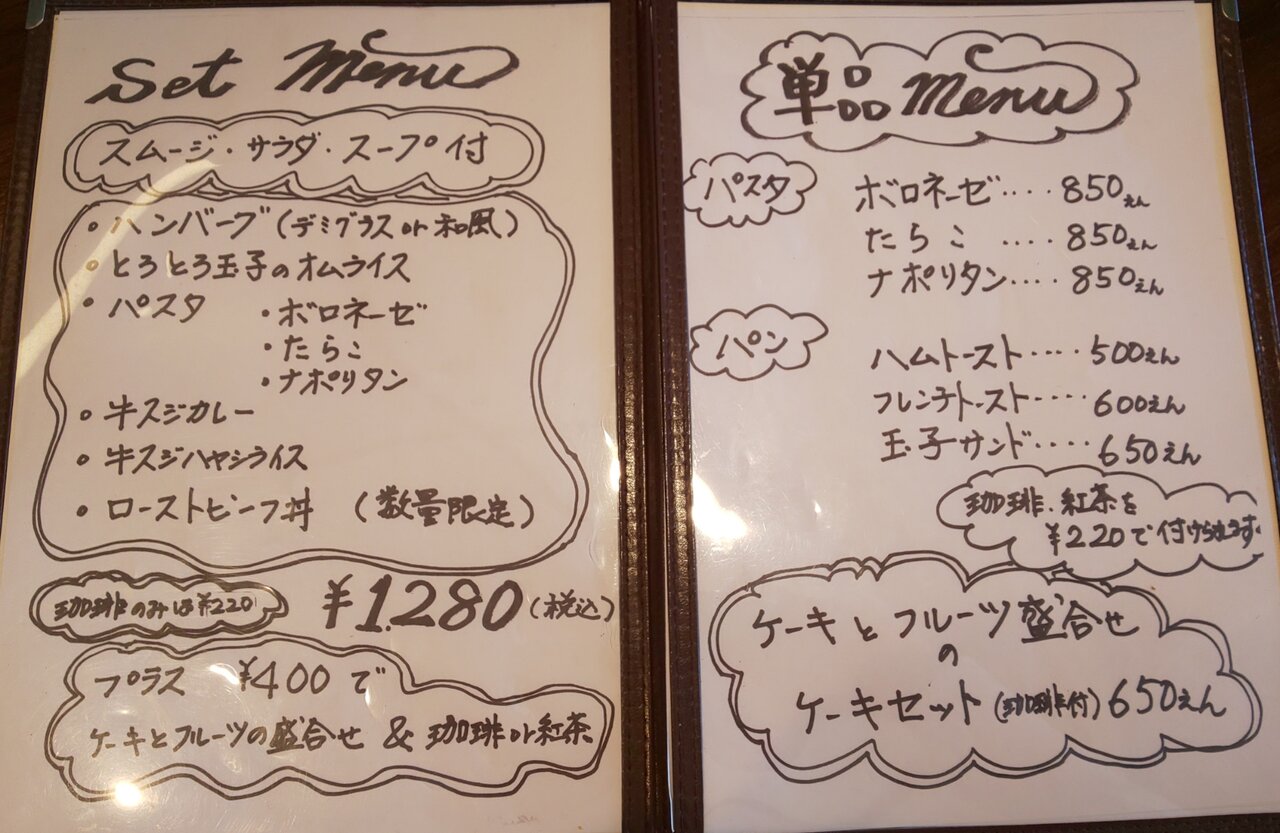 Set Menu
スムージ・サラダ・スープ付
・ハンバーグ(デミグラスor和風)
・とろとろ玉子のオムライス
・パスタ ・ボロネーゼ
・たらこ
・ナポリタン
・牛スジカレー
・牛スジハヤシライス
・ローストビーフ丼 (数量限定)
珈琲のみは¥220
¥1.280(税込)
プラス ¥400で
ケーキとフルーツの盛合せ & 珈琲or紅茶
単品Menu
パスタ
ボロネーゼ‥‥850えん
たらこ ‥‥850えん
ナポリタン‥‥850えん
パン
ハムトースト‥‥500えん
フレンチトースト‥‥600えん
玉子サンド‥‥650えん
珈琲、紅茶を
¥220で付けられます
ケーキとフルーツ盛合せ
の
ケーキセット(珈琲付)650えん